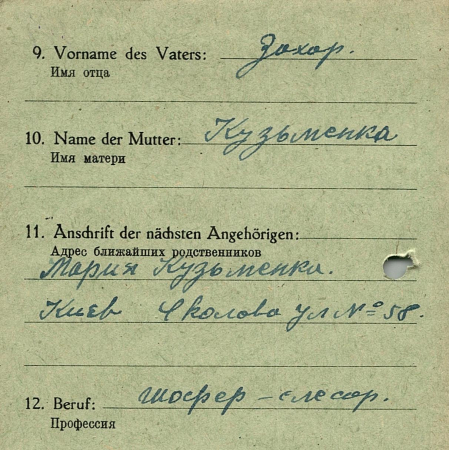 9. Vorname des Vaters: Захар.
Имя отца
10. Name der Mutter: Кузьменка
Имя матери
11. Anschrift der nächsten Angehörigen:
Адрес ближайших родственников
Мария Кузьменка.
Киев ул № 58.
12. Beruf: шофер - слесар.
Профессия